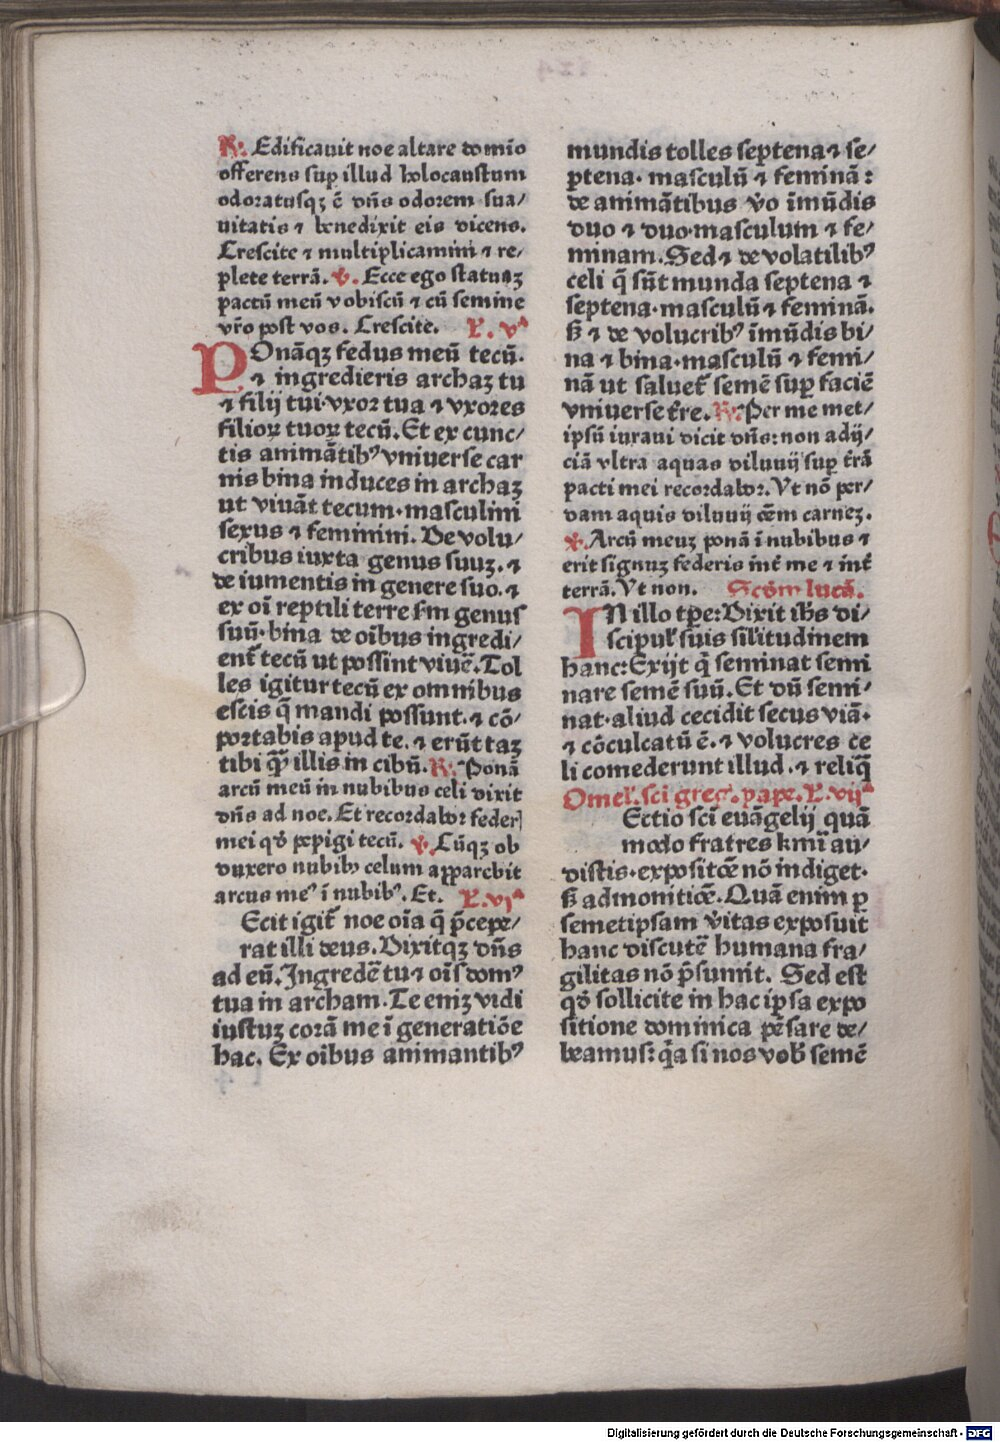 R: Edificauit noe altare domio
offerens sup illud holocaustum
odoratusqꝫ ē dn̄s odorem sua/
uitatis ⁊ benedixit eis dicens.
Crescite ⁊ multiplicamini ⁊ re/
plete terrā. V. Ecce ego statuaꝫ
pactū meū vobiscū ⁊ cū semine
vr̄o post vos. Crescite. L. vᵃ
POnāqꝫ fedus meū tecū.
⁊ ingredieris archaꝫ tu
⁊ filij tui·vxor tua ⁊ vxores
filioꝝ tuoꝝ tecū. Et ex cunc/
tis animātibꝰ vniuerse car
nis bina induces in archaꝫ
ut viuāt tecum·masculini
sexus ⁊ feminini. De volu/
cribus iuxta genus suuꝫ. ⁊
de iumentis in genere suo. ⁊
ex oī reptili terre sm genus
suū·bina de oībus ingredi/
ent̄ tecū ut possint viuē. Tol
les igitur tecū ex omnibus
escis q̄ mandi possunt. ⁊ cō/
portabis apud te. ⁊ erūt taꝫ
tibi qꝫ illis in cibū. R: Ponā
arcū meū in nubibus celi dixit
dn̄s ad noe. Et recordabor feder
mei qd̄ pepigi tecū. V. Cūqꝫ ob
duxero nubibꝰ celum apparebit
arcus meꝰ ī nubibꝰ. Et. L. vjᵃ
Ecit igit̄ noe oīa q̄ p̄cepe/
rat illi deus. Dixitqꝫ dn̄s
ad eū. Ingredē tu ⁊ oīs domꝰ
tua in archam. Te eniꝫ vidi
iustuꝫ corā me ī generatiōe
hac. Ex oībus animantibꝰ
mundis tolles septena ⁊ se/
ptena· masculū ⁊ feminā:
de animātibus v̄o īmūdis
duo ⁊ duo·masculum ⁊ fe/
minam. Sed ⁊ de volatilibꝰ
celi q̄ sūt munda septena ⁊
septena·masculū ⁊ feminā.
ß ⁊ de volucribꝰ īmūdis bi/
na ⁊ bina·masculū ⁊ femi/
nā ut saluet̄ semē sup faciē
vniuerse t̄re. R: Per me met/
ipsū iuraui dicit dn̄s: non adij/
ciā vltra aquas diluuij sup t̄rā
pacti mei recordabor. Vt nō per/
dam aquis diluuij oēm carneꝫ.
V. Arcū meuꝫ ponā ī nubibus ⁊
erit signuꝫ federis int̄ me ⁊ int̄
terrā. Vt non. Scdm lucā.
IN illo tpe: Dixit ihs di/
scipul' suis sil'itudinem
hanc: Exijt q̄ seminat semi
nare semē suū. Et dū semi/
nat·aliud cecidit secus viā.
⁊ cōculcatū ē. ⁊ volucres ce
li comederunt illud. ⁊ reliq̄
Omel'. sci greg'. pape. L. vijᵃ
Ectio sci euāgelij quā
modo fratres kmi au/
distis·expositōe nō indiget·
ß admonitiōe. Quā enim p
semetipsam v̄itas exposuit
hanc discutē humana fra/
gilitas nō p̄sumit. Sed est
qd̄ sollicite in hac ipsa expo
sitione dominica pēsare de/
beamus: q̄a si nos vob̄ semē
Digitalisierung gefördert durch die Deutsche Forschungsgemeinschaft - DFG